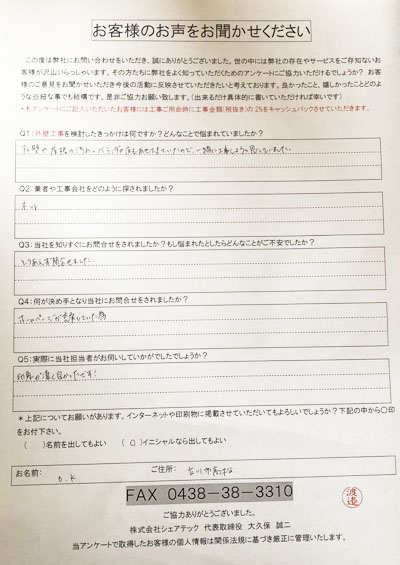 お客様のお声をお聞かせください
この度は弊社にお問い合わせをいただき、誠にありがとうございました。世の中には弊社の存在やサービスをご存知ないお
客様が沢山いらっしゃいます。その方たちに弊社をよく知っていただくためのアンケートにご協力いただけるでしょうか？ お客
様のご意見をお聞かせいただき今後の活動に反映させていただきたいと考えております。良かったこと、嬉しかったことどのよ
うな些細な事でも結構です。是非ご協力お願い致します。（出来るだけ具体的に書いていただければ幸いです）
*本アンケートにご記入いただいたお客様には工事ご用命時に工事金額（税抜き）の2%をキャッシュバックさせていただきます。
Q1：外壁工事を検討したきっかけは何ですか？どんなことで悩まれていましたか？
Q2：業者や工事会社をどのように探されましたか？
ネット
Q3：当社を知りすぐにお問合せをされましたか？もし悩まれたとしたらどんなことがご不安でしたか？
とりあえず問合せました。
Q4：何が決め手となり当社にお問合せをされましたか？
ホームページが充実していた為
Q5：実際に当社担当者がお伺いしていかがでしたでしょうか？
印象が凄く良かったです！
＊上記についてお願いがあります。インターネットや印刷物に掲載させていただいてもよろしいでしょうか？下記の中から〇印
をお付下さい。
（　）名前を出してもよい　（〇）イニシャルなら出してもよい
お名前： O.K ご住所： 市川市高石
FAX 0438-38-3310
渡邉
ご協力ありがとうございました。
株式会社シェアテック 代表取締役 大久保 誠二
当アンケートで取得したお客様の個人情報は関係法規に基づき厳正に管理いたします。